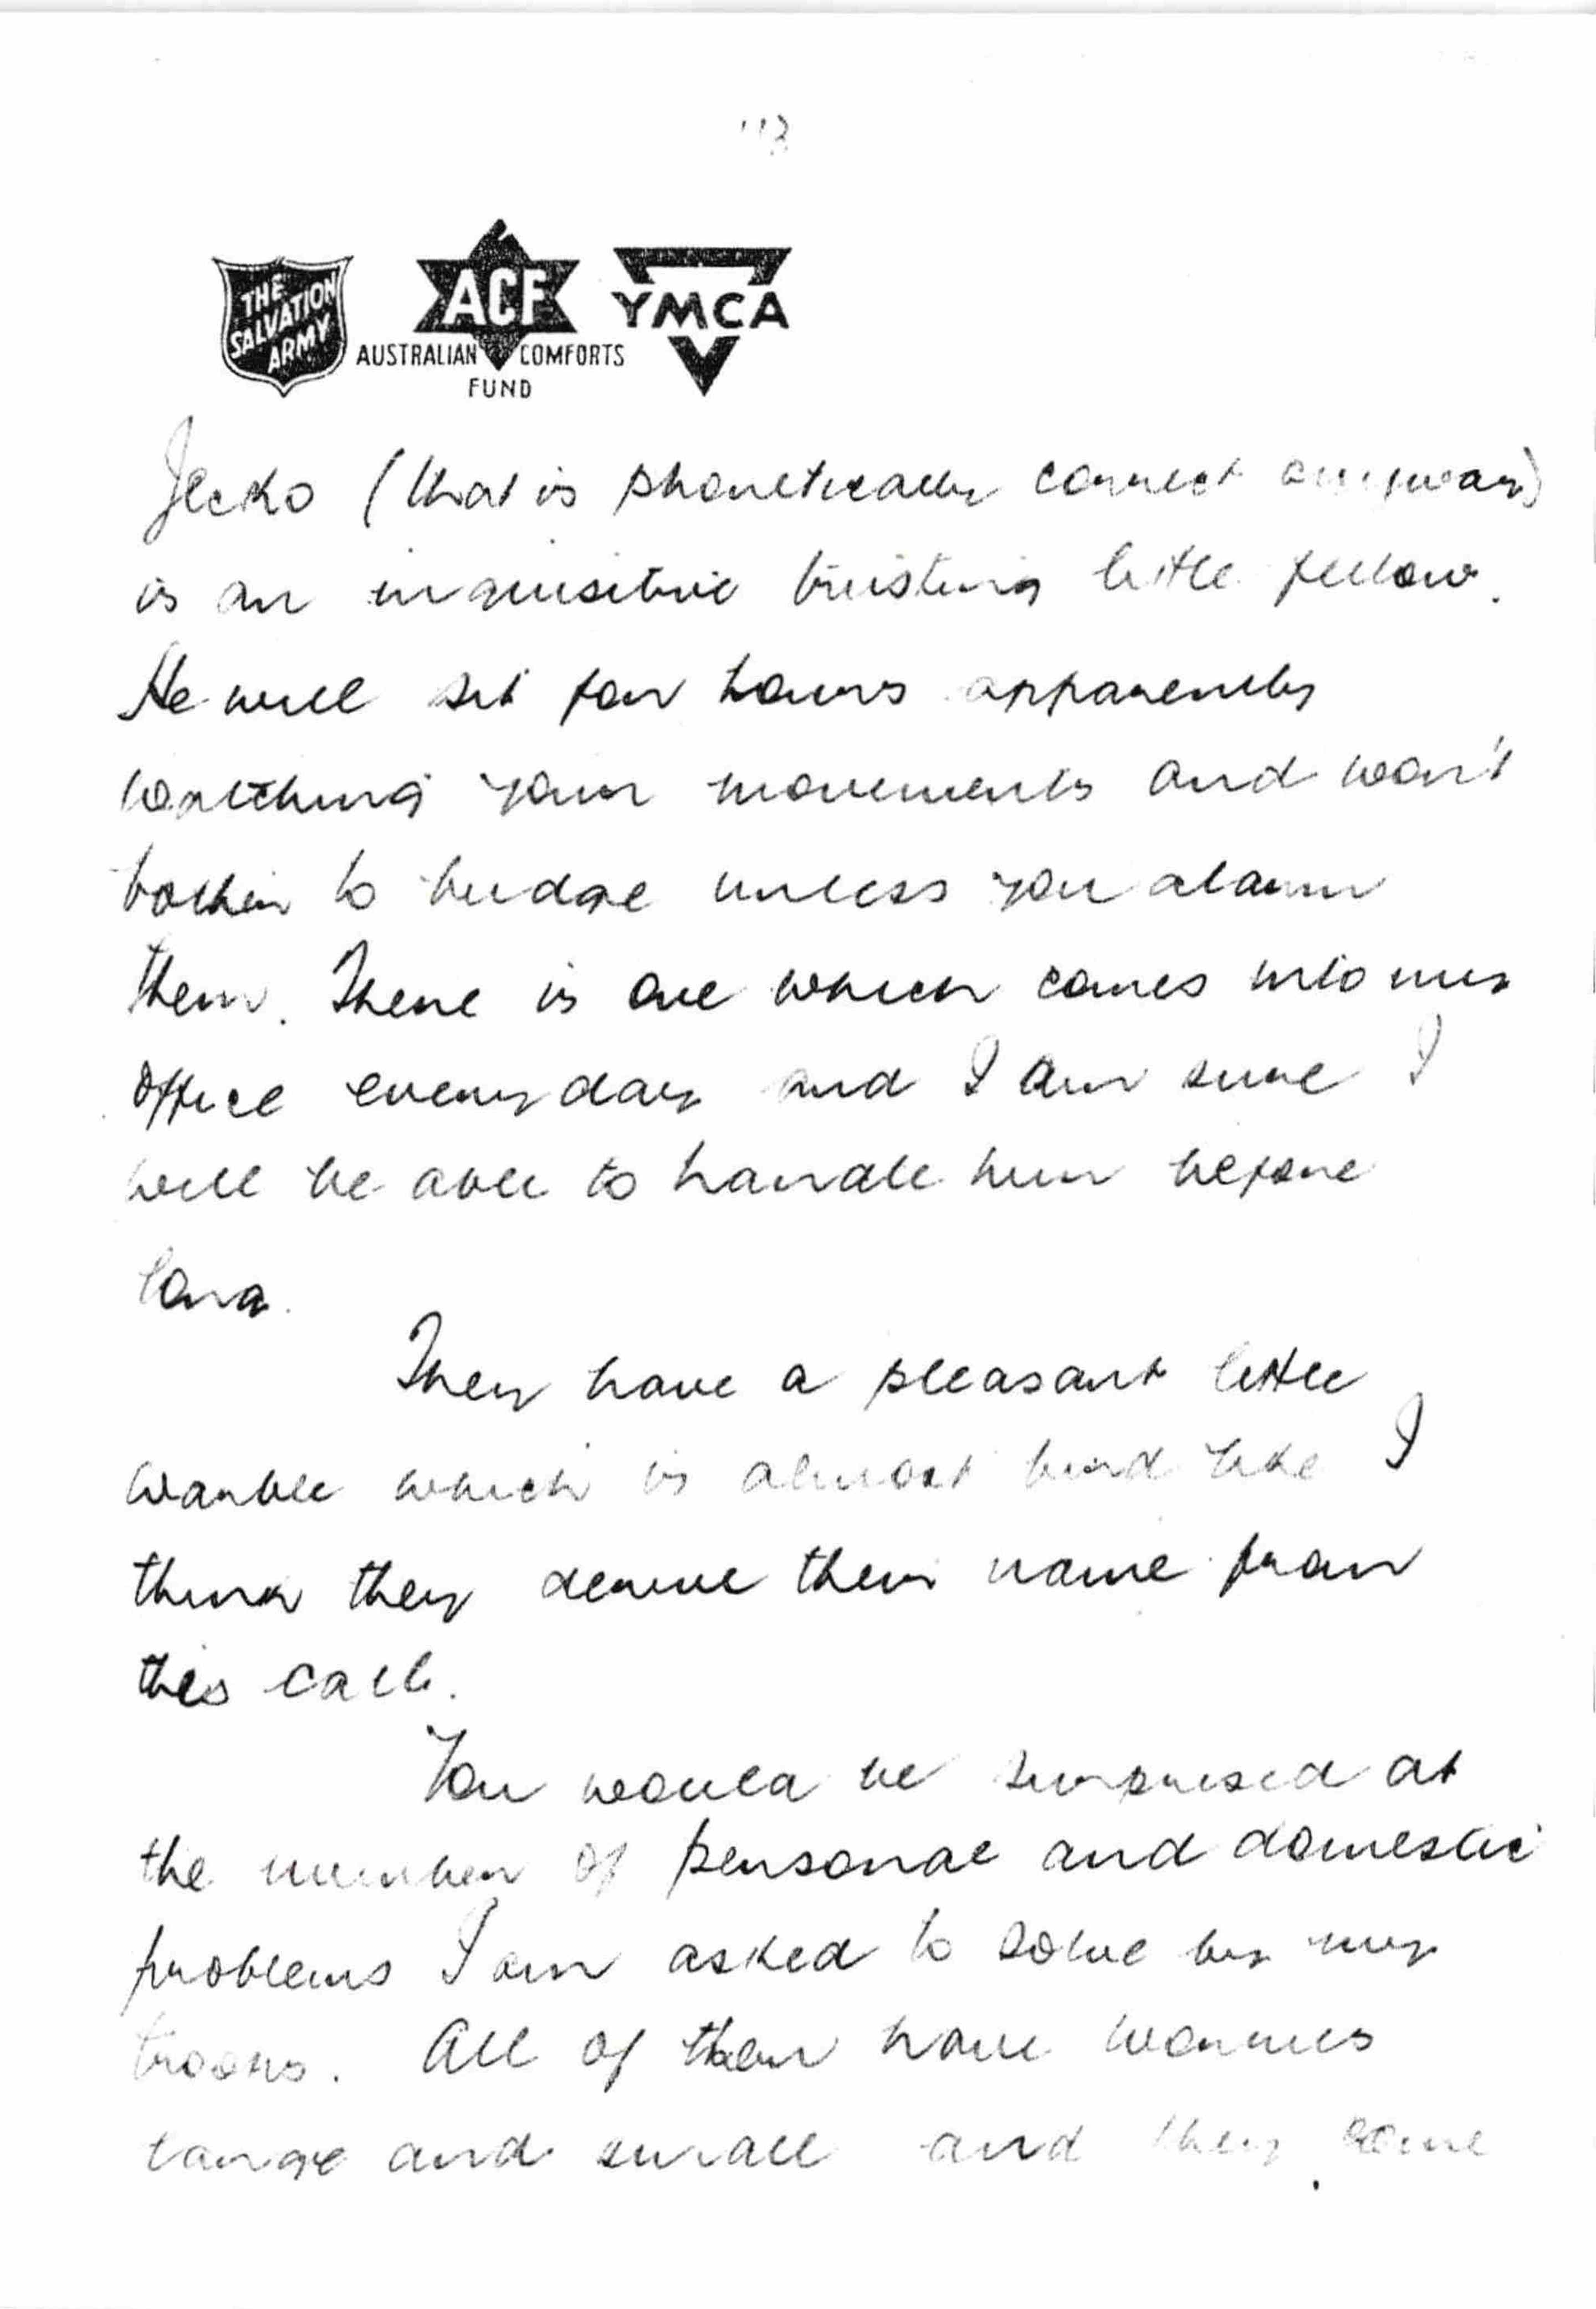 113
THE SALVATION ARMY
ACF
AUSTRALIAN COMFORTS
FUND
YMCA
Jecko (that is phonetically correct anyway)
is an inquisitive trusting little fellow.
He will sit for hours apparently
watching your movements and won't
bother to budge unless you alarm
them. There is one which comes into my
office every day and I am sure I
will be able to handle him before
long.
They have a pleasant little
warble which is almost bird like I
think they derive their name from
this call.
You would be surprised at
the number of personal and domestic
problems I am asked to solve by my
troops. All of them have worries
large and small and they come